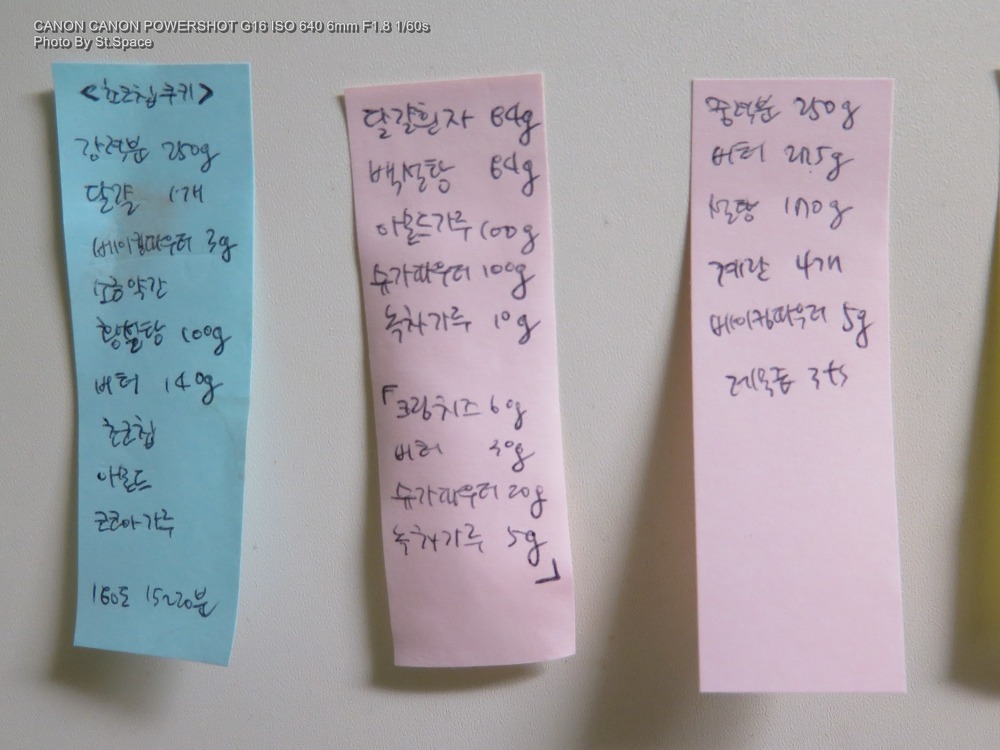 CANON CANON POWERSHOT G16 ISO 640 6mm F1.8 1/60s
Photo By St.Space
<초코칩쿠키>
강력분 250g
달걀 1개
베이킹파우더 3g
소금약간
황설탕 100g
버터 140g
초코칩
아몬드
코코아가루
180도 15~20분
달걀흰자 84g
백설탕 84g
아몬드가루 100g
슈가파우더 100g
녹차가루 10g
「크림치즈 60g
버터 30g
슈가파우더 20g
녹차가루 5g」
중력분 250g
버터
설탕 170g
계란 4개
베이킹파우더 5g
레몬즙 3ts